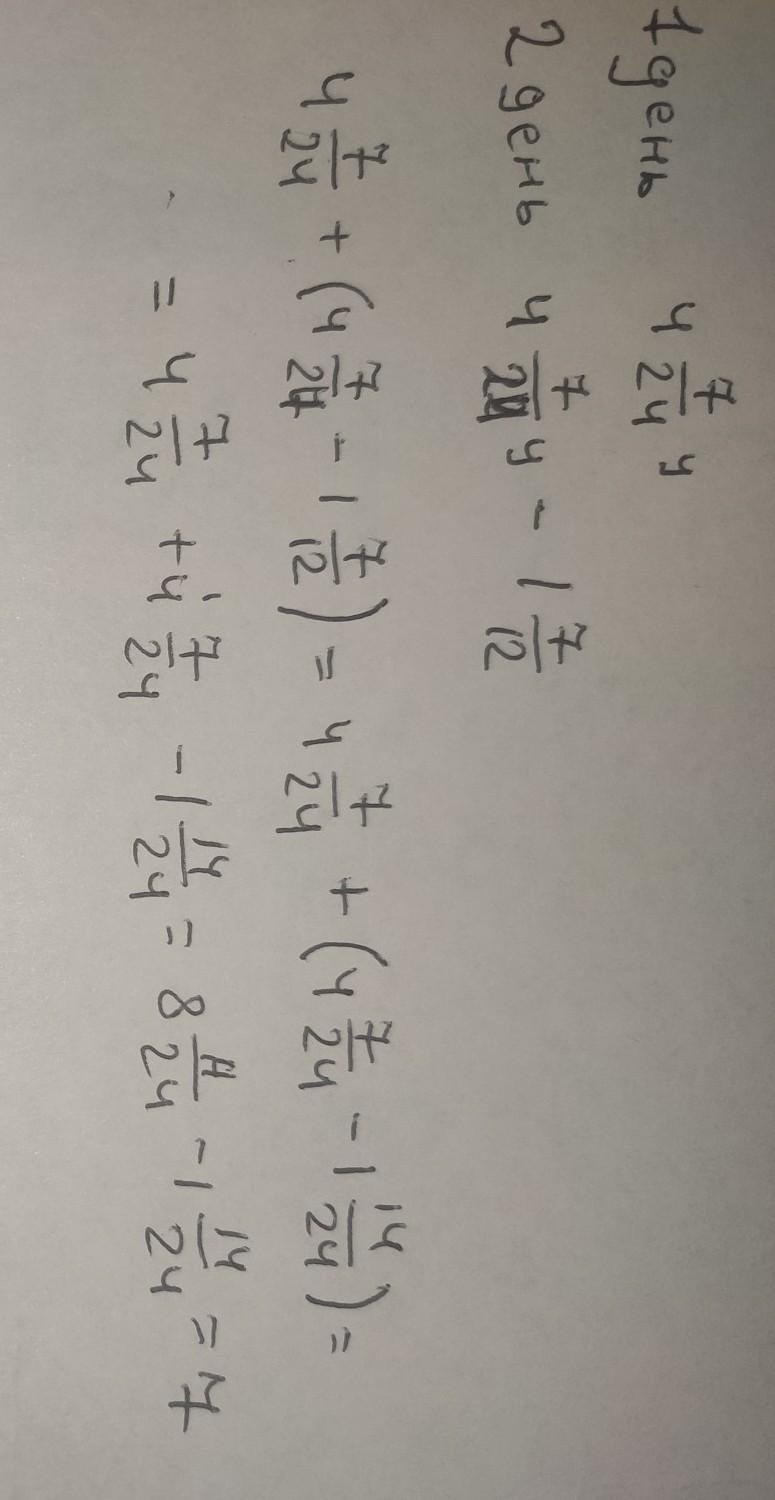 1 день 4 7/24 ч
2 день 4 7/24 ч - 1 7/12
4 7/24 + (4 7/24 - 1 7/12) = 4 7/24 + (4 7/24 - 1 14/24) =
= 4 7/24 + 4 7/24 - 1 14/24 = 8 14/24 - 1 14/24 = 7